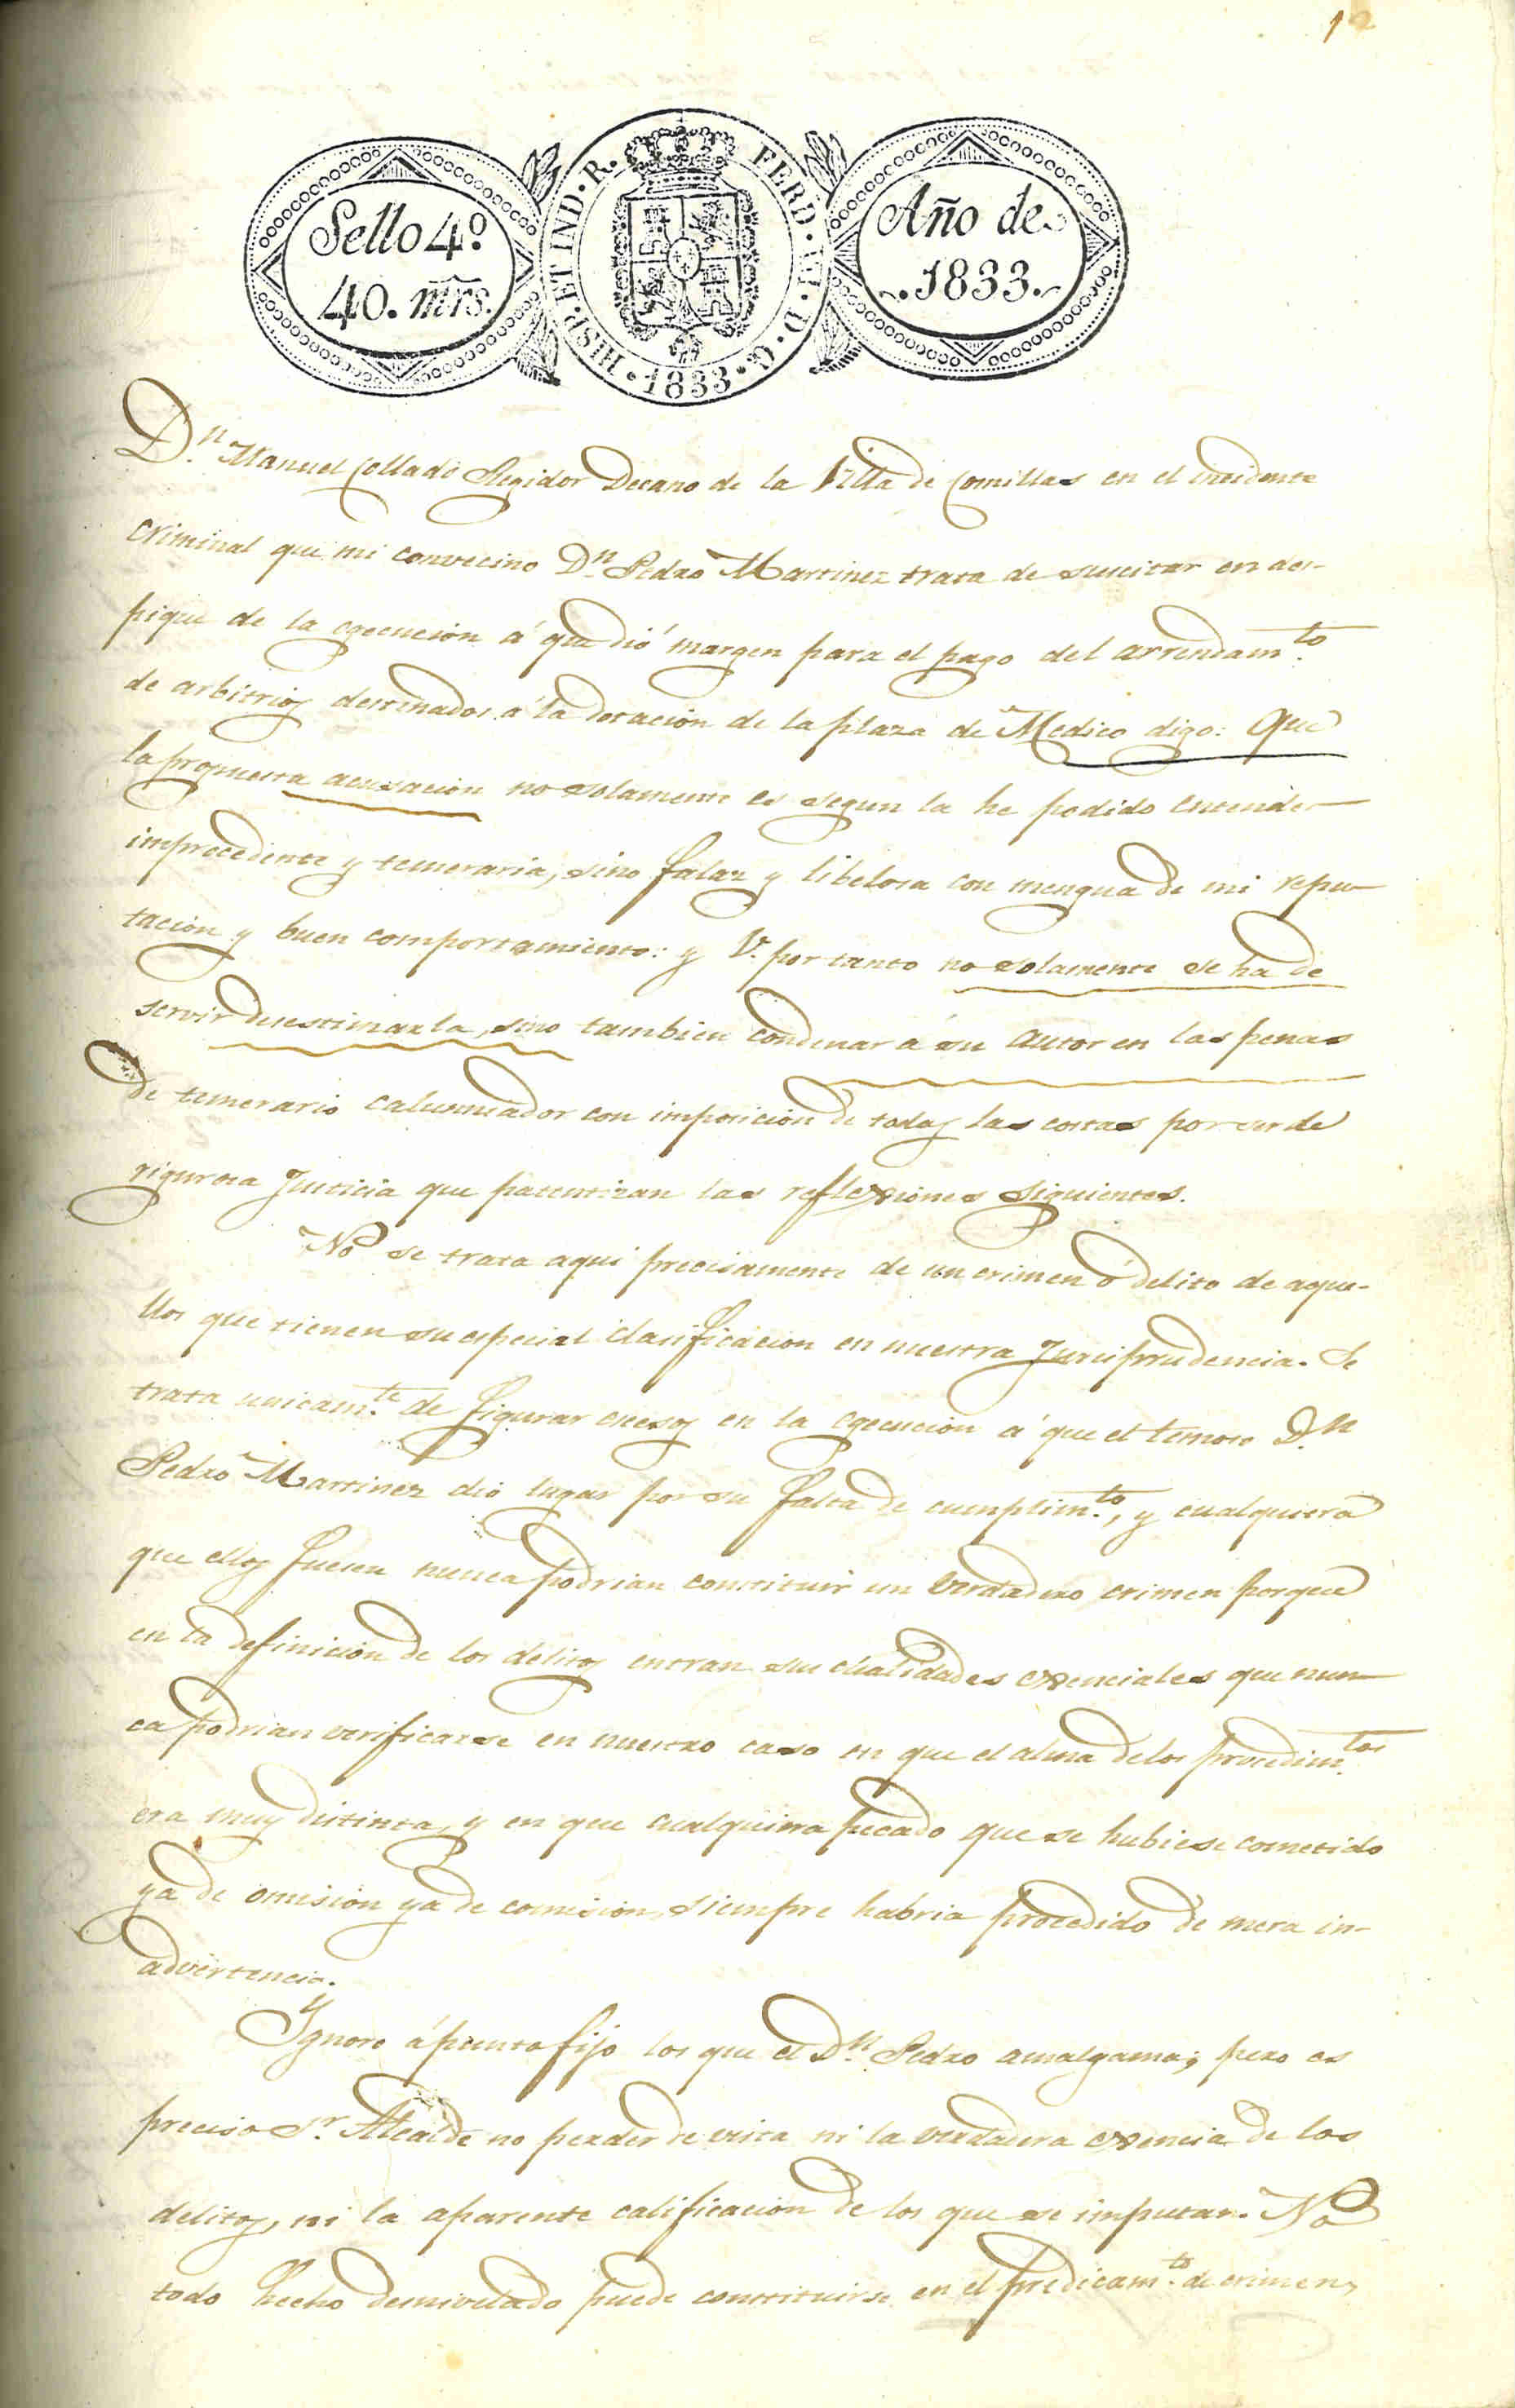 12
Sello 4º
40. mrs.
HISP. ET IND. R. FERD. VII. D. G. 1833
Año de
1833.
D.n Manuel Collado Regidor Decano de la Villa de Comillas en el incidente
criminal que mi convecino D.n Pedro Martinez trata de suscitar en des-
pique de la egecucion á que dió margen para el pago del arrendam.to
de arbitrios destinados á la dotacion de la plaza de Medico digo: Que
la propuesta acusacion no solamente es segun la he podido entender
improcedente y temeraria, sino falaz y libelosa con mengua de mi repu-
tacion y buen comportamiento: y V. por tanto no solamente se ha de
servir desestimarla, sino tambien condenar á su autor en las penas
de temerario calumniador con imposicion de todas las costas por ser de
rigurosa Justicia que patentizan las reflexiones siguientes.
No se trata aqui precisamente de un crimen ó delito de aque-
llos que tienen su especial clasificacion en nuestra Jurisprudencia. Se
trata unicam.te de figurar excesos en la egecucion á que el D.n
Pedro Martinez dió lugar por su falta de cumplim.to, y cualquiera
que ellos fuesen nunca podrian constituir un verdadero crimen porque
en la definicion de los delitos entran sus cualidades esenciales que nun-
ca podrian verificarse en nuestro caso en que el alma de los procedim.tos
era muy distinta, y en que cualquiera pecado que se hubiese cometido
ya de omision ya de comision, siempre habria procedido de mera in-
advertencia.
Ygnoro á punto fijo los que el D.n Pedro amalgama; pero es
preciso S.r Alcalde no perder de vista ni la verdadera esencia de los
delitos, ni la aparente calificacion de los que se imputan. No
todo hecho desnivelado puede constituirse en el predicam.to de crimen,